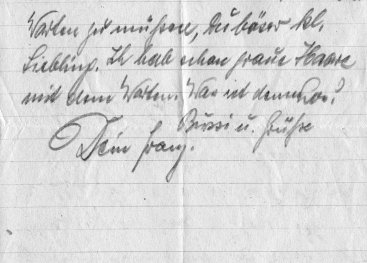 Warten zu müssen, Du böser kl.
Liebling. Ich hab schon graue Haare
mit dem Warten. Was ist denn los?
Bussi u. Grüße
Dein Franz.